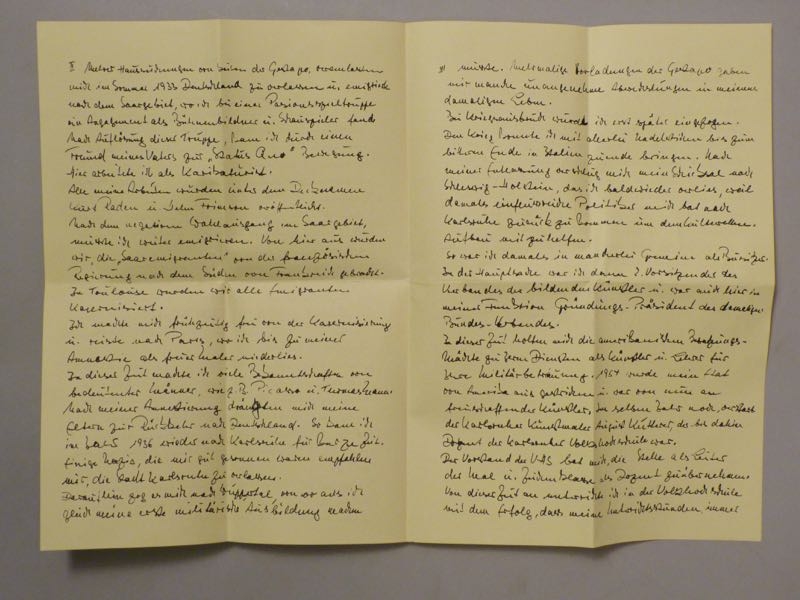 II Mehrer Hausuchungen von seiten der Gestapo, veranlassten
mich im Sommer 1933 Deutschland zu verlassen u. emigrierte
nach dem Saargebiet, wo ich bei einer Passionsspieltruppe
ein Angagement als Bühnenbildner u. Schauspieler fand
Nach Auflösung dieser Truppe, kam ich durch einen
Freund meines Vaters zur „Status Quo" Bewegung.
Hier arbeitete ich als Karikaturist.
Alle meine Arbeiten wurden unter dem Decknamen
Kurt Raden u. John veröffentlicht.
Nach dem negativen Wahlausgang im Saargebiet,
musste ich weiter emigrieren. Von hier aus wurden
wir, die „Saaremigranten" von der französischen
Regierung nach dem Süden von Frankreich gebracht.
In Toulouse wurden wir alle Emigranten
Kaserniert.
Ich machte mich frühzeitig frei von der Kasernierung
u. reiste nach Paris, wo ich bis zu meiner
Amnestie als freier Maler niederlies.
In dieser Zeit machte ich viele Bekanntschaften von
bedeutenter Männer, wie z.B. Picasso u. Thomas Mann.
Nach meiner Amnestierung drängten mich meine
Eltern zur Rückkehr nach Deutschland. So kam ich
im Jahre 1936 wieder nach Karlsruhe für kurze Zeit.
Einige Nazis, die mir gut gesonnen waren empfahlen
mir, die Stadt Karlsruhe zu verlassen.
Daraufhin zog es mich nach Wuppertal, von wo aus ich
gleich meine erste militärische Ausbildung machen
III musste. Mehrmalige Vorladungen der Gestapo gaben
mir manche unangenehme Abwechslungen in meinem
damaligen Leben.
Bei Kriegsausbruch wurde ich erst später eingezogen.
Den Krieg konnte ich mit allerlei Nadelstichen bis zum
bitteren Ende in Italien zuende bringen. Nach
meiner Entlassung verschlug mich mein Schicksal nach
Schleswig-Holstein, das ich bald wieder verlies, weil
damals einflussreiche Politiker mich bat nach
Karlsruhe zurück zu kommen um den kulturellen
Aufbau mit zu helfen.
So war ich damals in mancherlei Gremien als Beisitzer.
In der Hauptsache war ich dann 2. Vorsitzender des
Verbandes der bildenden Künstler u. war auch hier in
meiner Funktion Gründungs-Präsident des damaligen
Bundes-Verbandes.
In dieser Zeit holten mich die amerikanischen Besatzungs-
Mächte zu ihren Diensten als Künstler u. Lehrer für
Ihre Militärbetreuung. 1954 wurde mein Etat
von Amerika aus gestrichen u. war von nun an
freischaffender Künstler. Im selben Jahr noch, verstarb
der Karlsruher Kunstmaler August Kutterer, der bis dahin
Dozent der Karlsruher Volkshochschule war.
Der Vorstand der VHS bat mich, die Stelle als Leiter
der Mal u. Zeichenklasse als Dozent zu übernehmen.
Von dieser Zeit an unterrichte ich in der Volkshochschule
mit dem Erfolg, dass meine Unterrichtsstunden, immer